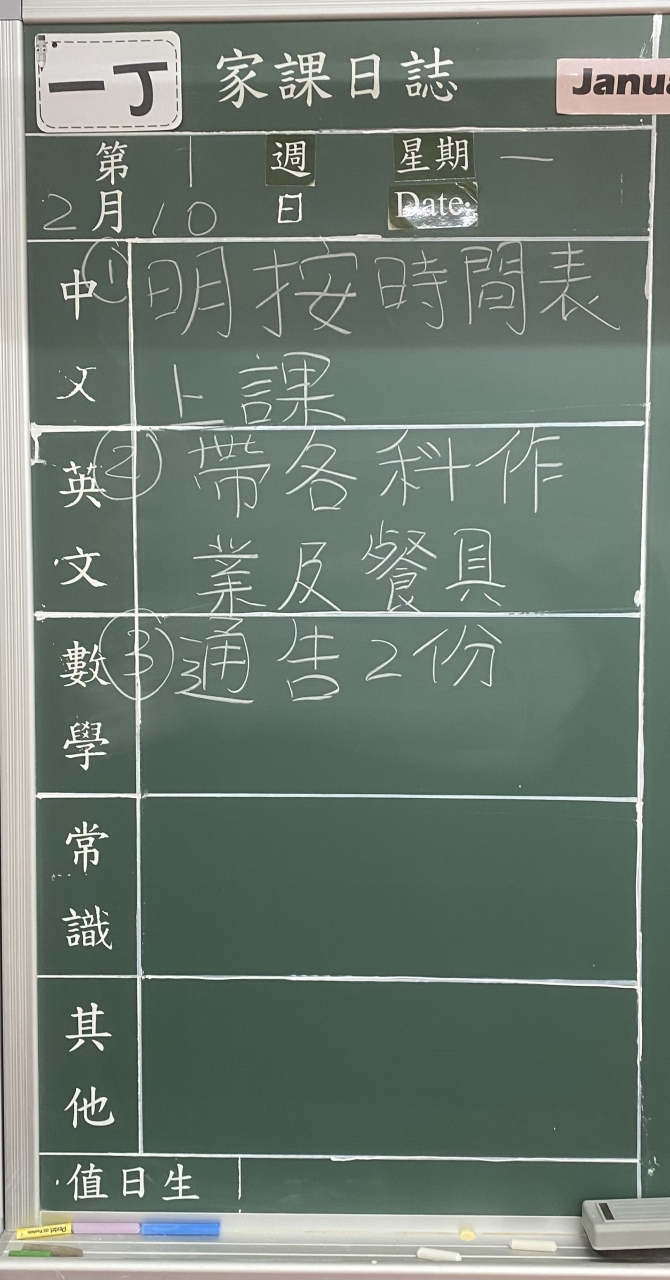 一丁
家課日誌
Janua
第 1 週 星期 一
2月10日 Date:
中文
① 明按時間表
上課
英文
② 帶各科作
業及餐具
數學
③ 通告2份
常識
其他
值日生